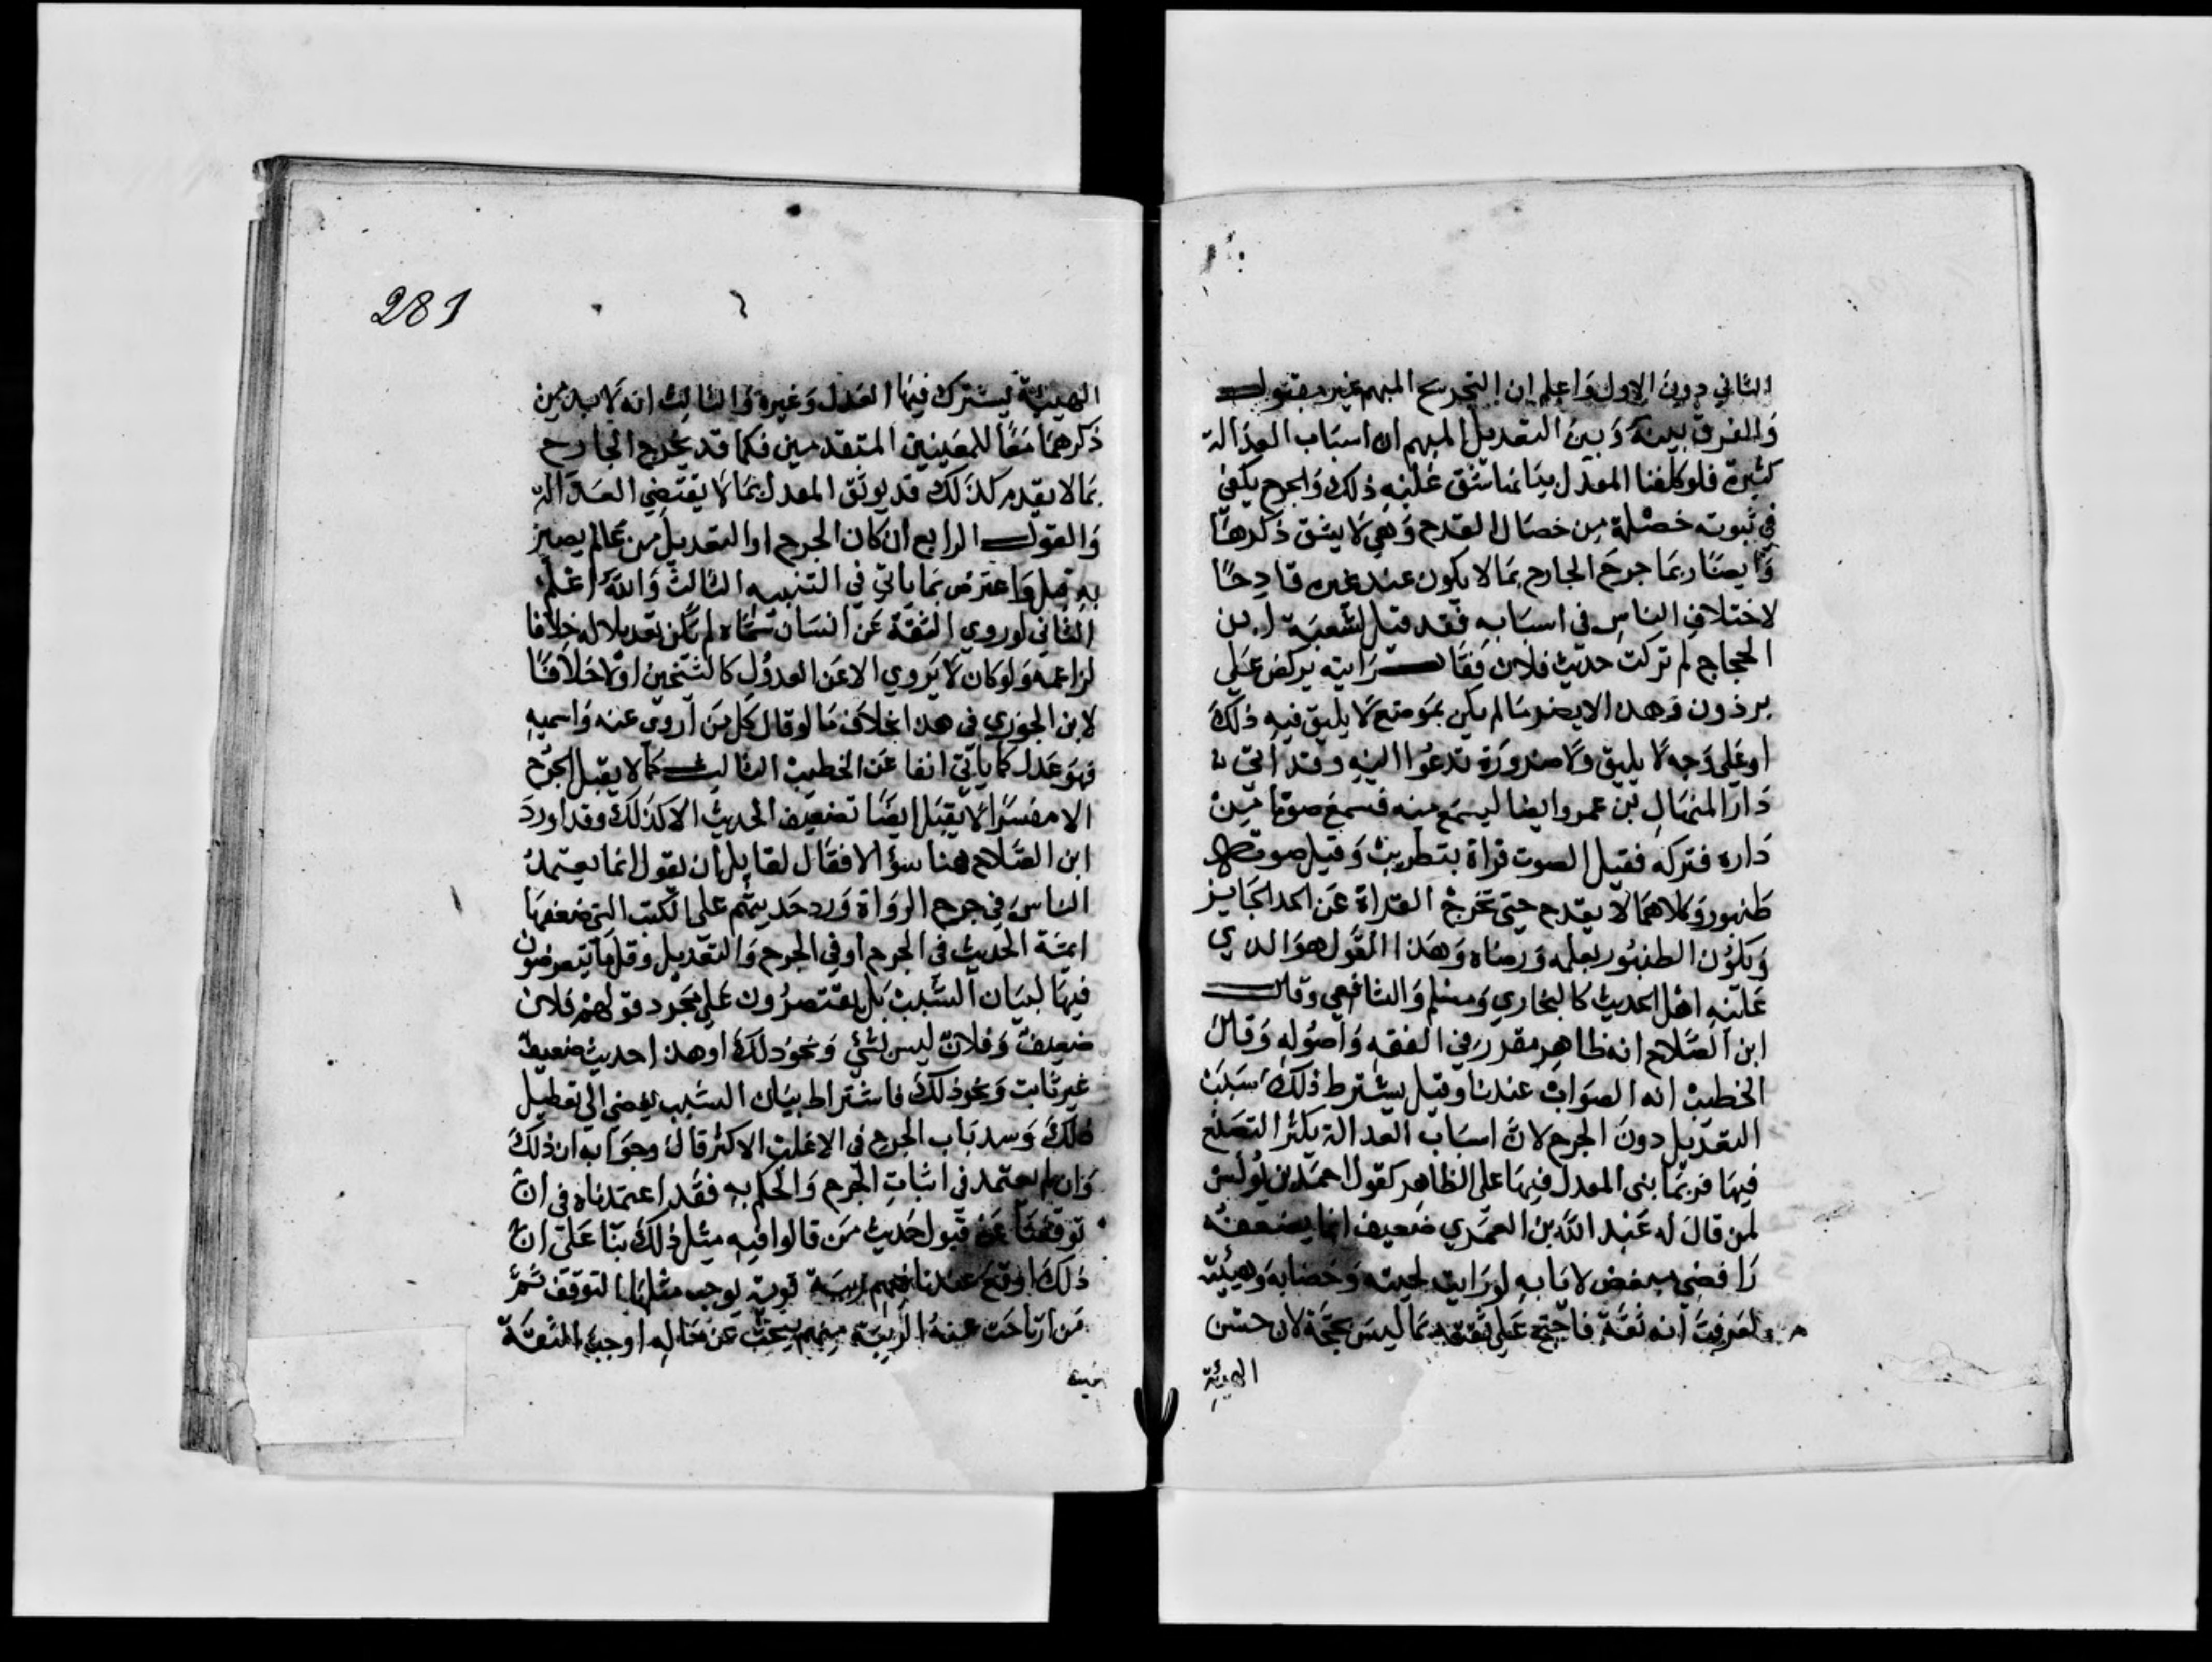 الثاني دون الاول واعلم ان التجريح المبهم غير مقبول
والفرق بينه وبين التعديل المبهم ان اسباب العدالة
كثيرة فلو كلفنا المعدل بيانها شق عليه ذلك والجرح يكفي
في ثبوته خصلة من خصال القدح وهي لا يشق ذكرها
وايضا ربما جرح الجارح بما لا يكون عند غيره قادحا
لاختلاف الناس في اسبابه فقد قيل لشعبة ابن
الحجاج لم تركت حديث فلان فقال رايته يركض على
برذون وهذا لا يضر ما لم يكن بموضع لا يليق فيه ذلك
او على وجه لا يليق ولا ضرورة تدعوا اليه وقد اتى
دار المنهال بن عمرو ايضا ليسمع منه فسمع صوتا من
داره فتركه فقيل الصوت قراة بتطريب وقيل صوت
طنبور وكلاهما لا يقدح حتى تخرج القراة عن الحد الجايز
ويكون الطنبور بعلمه ورضاه وهذا القول هو الذي
عليه اهل الحديث كالبخاري ومسلم والشافعي وقال
ابن الصلاح انه ظاهر مقرر في الفقه واصوله وقال
الخطيب انه الصواب عندنا وقيل يشترط ذلك سبب
التعديل دون الجرح لان اسباب العدالة يكثر التصنع
فيها فربما بنى المعدل فيها على الظاهر كقول احمد بن يونس
لمن قال له عبد الله بن العمري ضعيف انما يضعفه
رافضي مبغض لابايه لو رايت لحيته وخضابه وهيئته
لعرفت انه ثقة فاحتج على ثقته بما ليس بحجة لان حسن
الهيئة
281
الهيئة يشترك فيها العدل وغيره والثالث انه لا بد من
ذكرهما معا للمعنيين المتقدمين فكما قد يجرح الجارح
بما لا يقدح كذلك قد يوثق المعدل بما لا يقتضي العدالة
والقول الرابع ان كان الجرح او التعديل من عالم بصير
به قبل واعترض بما ياتي في التنبيه الثالث والله اعلم
الثاني لو روي الثقة عن انسان سماه لم يكن تعديلا له خلافا
لزاعمه ولو كان لا يروي الا عن العدول كالشيخين او لا خلافا
لابن الجوزي في هذا بخلاف ما لو قال كل من اروي عنه واسميه
فهو عدل كما ياتي انفا عن الخطيب الثالث كما لا يقبل الجرح
الا مفسرا لا يقبل ايضا تضعيف الحديث الا كذلك وقد اورد
ابن الصلاح هنا سؤالا فقال لقايل ان يقول انما يعتمد
الناس في جرح الرواة ورد حديثهم على الكتب التي ضعفها
ايمة الحديث في الجرح او في الجرح والتعديل وقل ما يتعرضون
فيها لبيان السبب بل يقتصرون على مجرد قولهم فلان
ضعيف وفلان ليس بشئ ونحو ذلك او هذا حديث ضعيف
غير ثابت ونحو ذلك فاشتراط بيان السبب يفضي الى تعطيل
ذلك وسد باب الجرح في الاغلب الاكثر قال وجوابه ان ذلك
وان لم يعتمد في اثبات الجرح والحكم به فقد اعتمدناه في ان
توقفنا عن قبول حديث من قالوا فيه مثل ذلك بنا على ان
ذلك اوقع عندنا فيهم ريبة قوية يوجب مثلها التوقف ثم
من انزاحت عنه الريبة منهم ببحث عن حاله اوجب الثقة